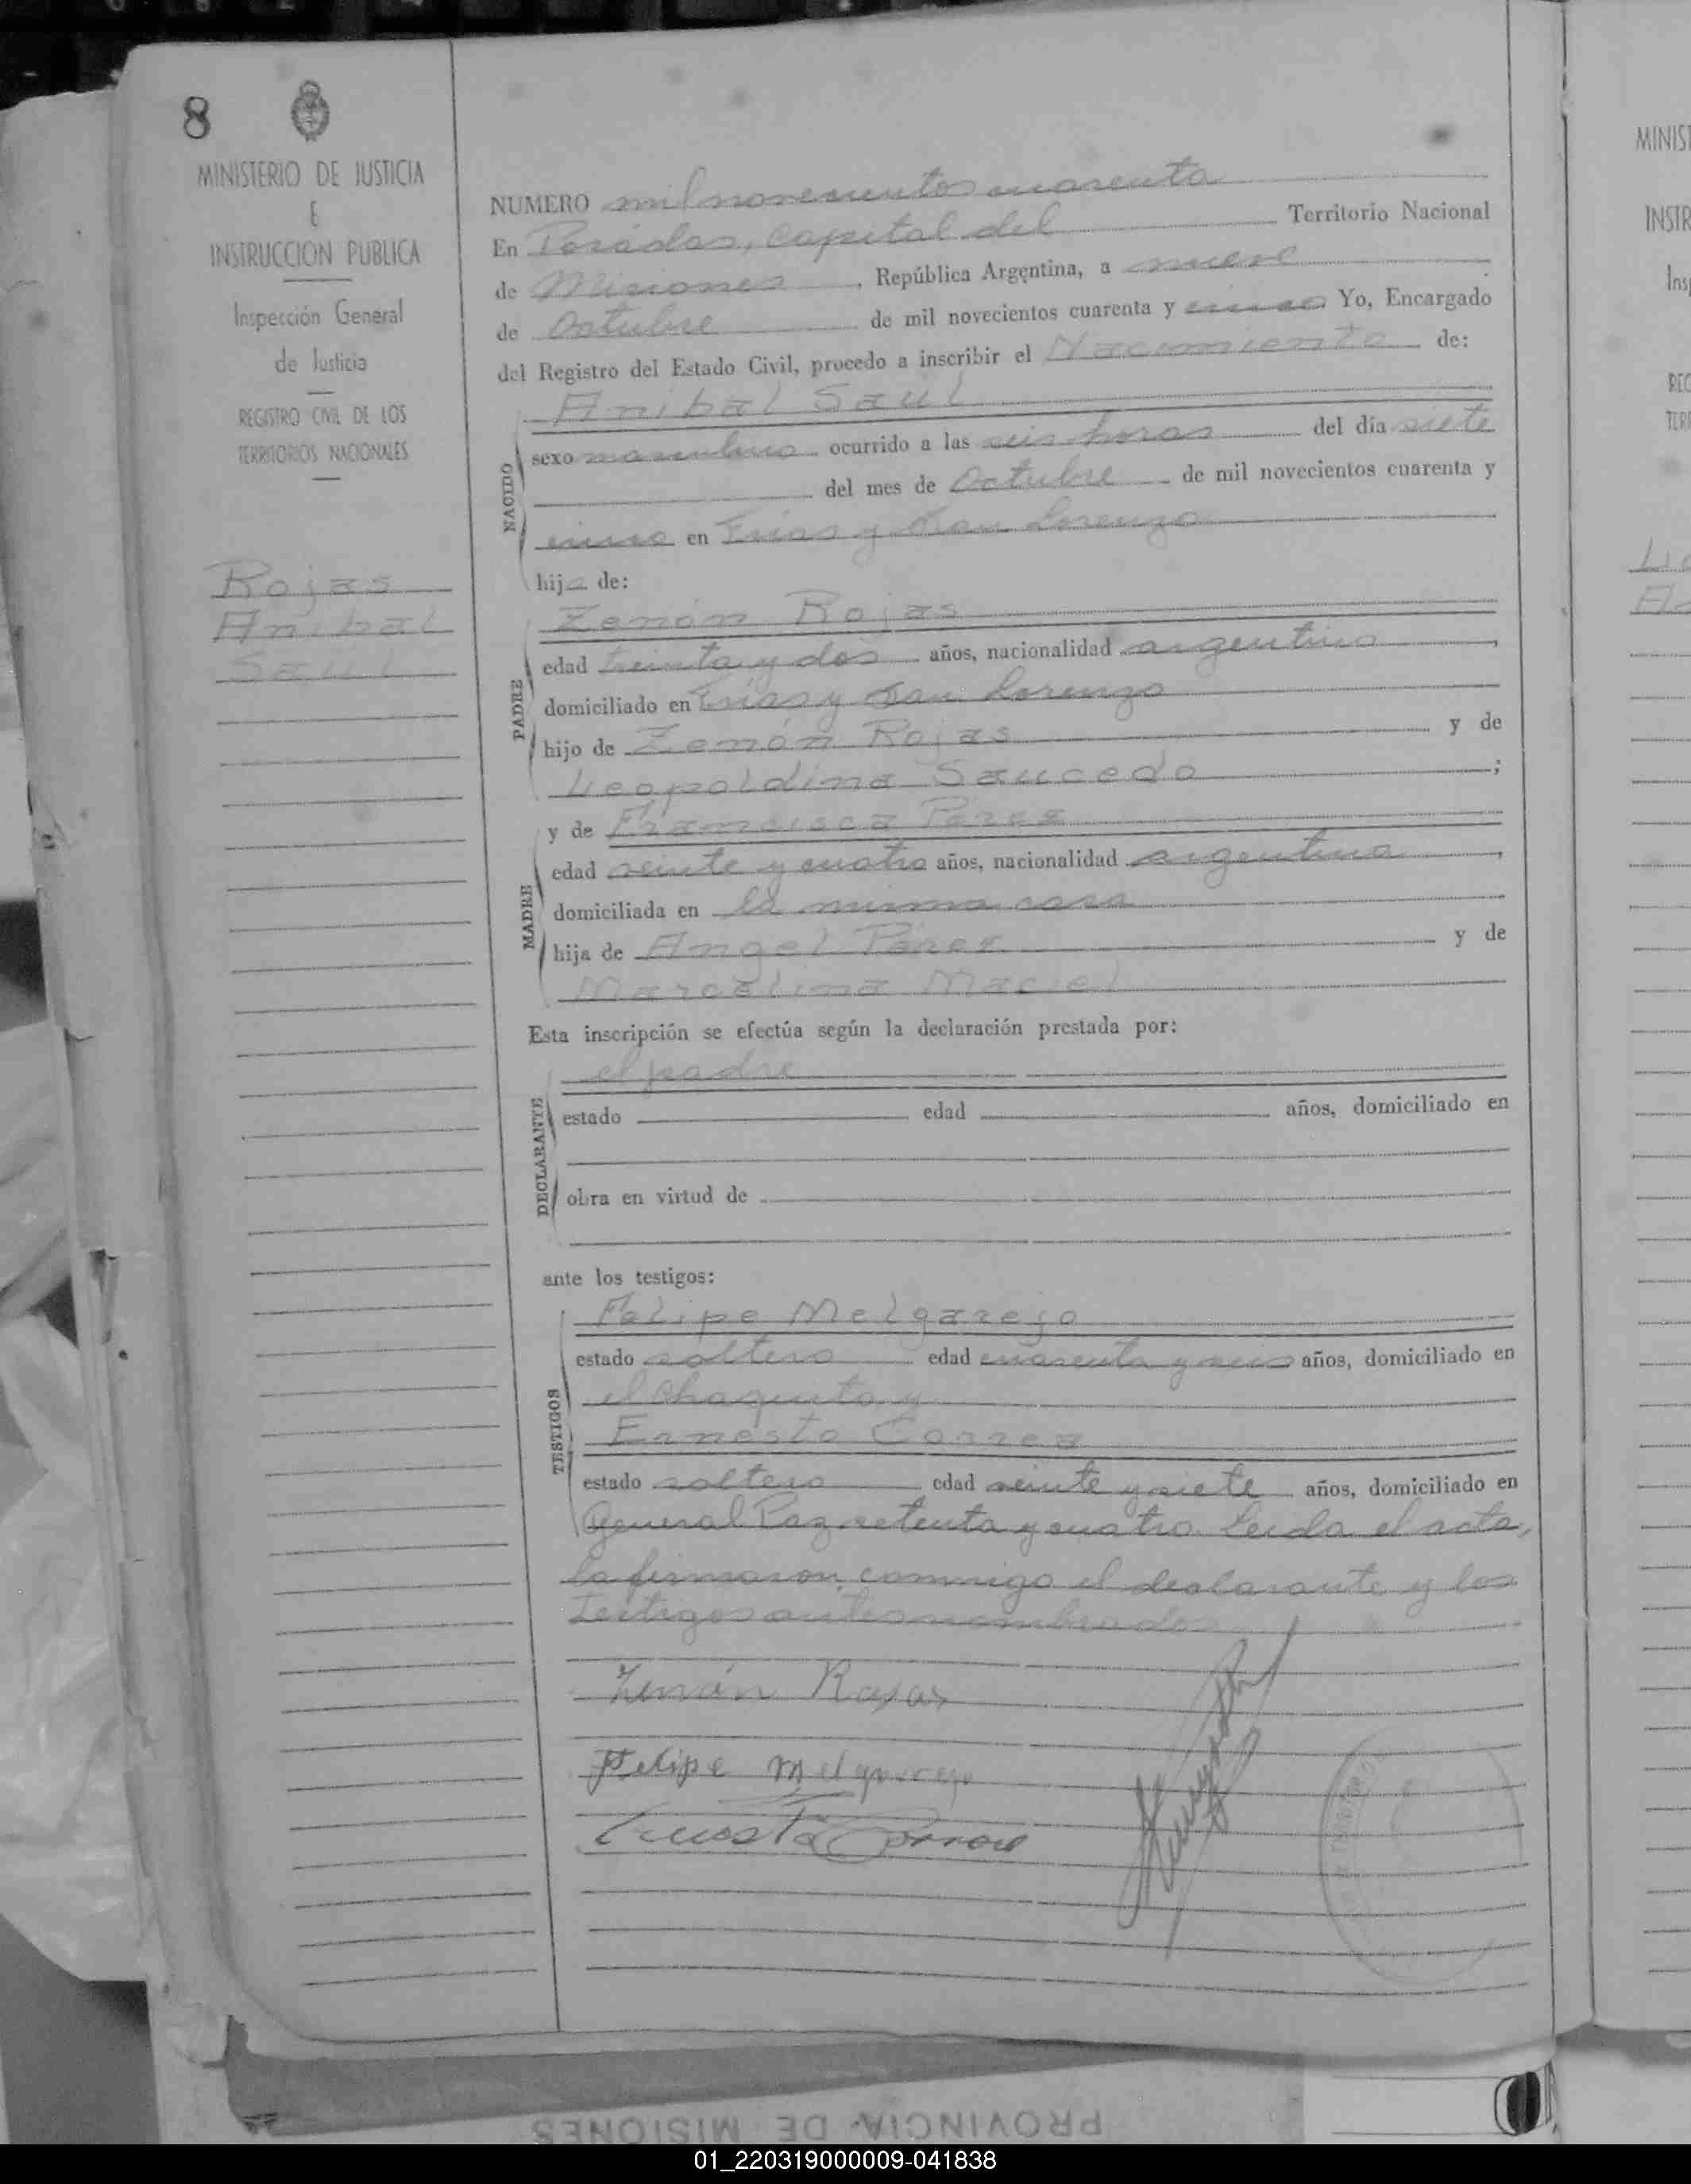 8
MINISTERIO DE JUSTICIA
E
INSTRUCCION PUBLICA
Inspección General
de Justicia
REGISTRO CIVIL DE LOS
TERRITORIOS NACIONALES
Rojas
Anibal
Saul
NUMERO mil novecientos cuarenta
En Posadas, Capital del Territorio Nacional
de Misiones, República Argentina, a nueve
de Octubre de mil novecientos cuarenta y cinco Yo, Encargado
del Registro del Estado Civil, procedo a inscribir el Nacimiento de:
NACIDO
Anibal Saúl
sexo masculino ocurrido a las seis horas del día siete
del mes de Octubre de mil novecientos cuarenta y
cinco en Frias y San Lorenzo
hijo de:
PADRE
Zenón Rojas
edad treinta y dos años, nacionalidad argentino,
domiciliado en Frias y San Lorenzo
hijo de Zenón Rojas y de
Leopoldina Saucedo;
MADRE
y de Francisca Pérez
edad veinte y cuatro años, nacionalidad argentina,
domiciliada en la misma casa
hija de Angel Pérez y de
Marcelina Maciel
Esta inscripción se efectúa según la declaración prestada por:
DECLARANTE
el padre
estado edad años, domiciliado en
obra en virtud de
ante los testigos:
TESTIGOS
Felipe Melgarejo
estado soltero edad cuarenta y seis años, domiciliado en
el Chaquito y
Ernesto Correa
estado soltero edad veinte y siete años, domiciliado en
General Paz setenta y cuatro. Leida el acta,
la firmaron conmigo el declarante y los
testigos antes nombrados
Zenón Rojas
Felipe Melgarejo
Ernesto Correa
MINIST
INSTR
Ins
REG
TERR
PROVINCIA DE MISIONES
01_220319000009-041838